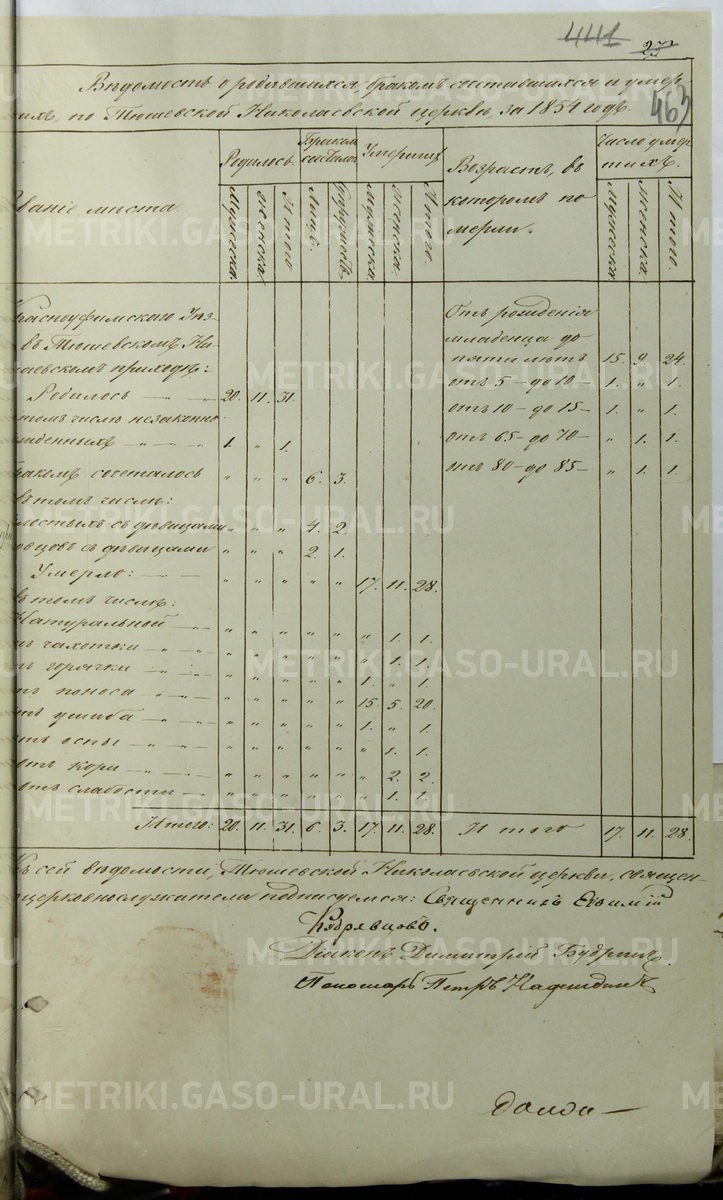 441
27
463
Вѣдомость о родившихся, бракомъ сочетавшихся и умер-
шихъ, по Тюшевской Николаевской церкви за 1854 годъ
Званіе мѣста
Родилось
Мужеска.
Женска.
Итого
Бракомъ сочеталось
Лицъ.
Супружествъ.
Умершихъ
Мужеска.
Женска.
Итого.
Возрастъ, въ
которомъ по
мерли.
Число умер
шихъ.
Мужеска
Женска.
Итого.
Красноуфимскаго Уѣз-
въ Тюшевскомъ Ни-
лаевскомъ приходѣ:
Родилось — „ — 20. 11. 31.
томъ числѣ незаконно
жденныхъ — „ — „ — 1. „ 1.
Бракомъ сочеталось „ „ „ 6. 3.
Въ томъ числѣ:
лостыхъ съ дѣвицами „ „ „ 4. 2.
овцовъ съ дѣвицами „ „ „ 2. 1.
Умерло: — „ — „ „ „ „ „ 17. 11. 28.
Въ томъ числѣ:
Натуральной — „ — „ „ „ „ „ „ 1. 1.
тъ чахотки — „ — „ „ „ „ „ „ 1. 1.
тъ горячки — „ — „ „ „ „ „ 1. „ 1.
отъ поноса — „ — „ „ „ „ „ 15. 5. 20.
отъ ушиба — „ — „ „ „ „ „ 1. „ 1.
отъ оспы — „ — „ — „ „ „ „ „ „ 1. 1.
отъ кори — „ — „ — „ „ „ „ „ „ 2. 2.
отъ слабости — „ — „ „ „ „ „ „ 1. 1.
Итого: 20. 11. 31. 6. 3. 17. 11. 28.
Отъ рожденія
младенца до
пяти лѣтъ 15. 9. 24.
отъ 5 – до 10 – 1. „ 1.
отъ 10 – до 15 – 1. „ 1.
отъ 65 – до 70 – „ 1. 1.
отъ 80 – до 85 – „ 1. 1.
Итого 17. 11. 28.
Къ сей вѣдомости, Тюшевской Николаевской церкви, священ-
церковнослужатели подписуемся: Священникъ Евѳимій
Кудрявцовъ.
Діаконъ Димитрій Будринъ.
Пономарь Петръ
METRIKI.GASO-URAL.RU